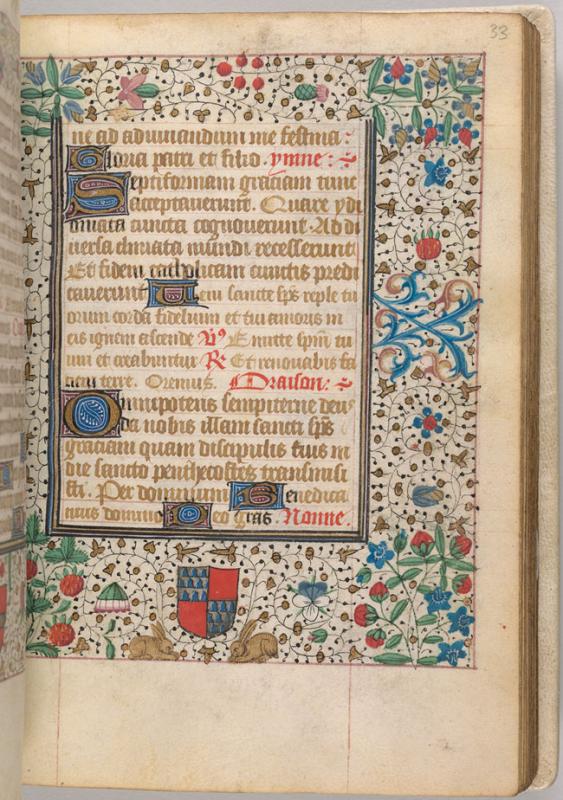 33
ne ad adiuuandum me festina.
Gloria patri et filio. ymne:
Septiformam graciam tunc
acceptauerunt. Quare ydi
omata cuncta cognouerunt. Ad di
uersa climata mundi recesserunt
Et fidem catholicam cunctis predi
cauerunt Ueni sancte sps reple tu
orum corda fidelium et tui amoris in
eis ignem ascende V9 Emitte spm tu
um et creabuntur R Et renouabis fa
ciem terre. Oremus. Oraison:
Omnipotens sempiterne deus
da nobis illam sancti sps
graciam quam discipulis tuis in
die sancto penthecostes transmisi
sti. Per dominum Benedica
mus domino Deo gras. Nonne.